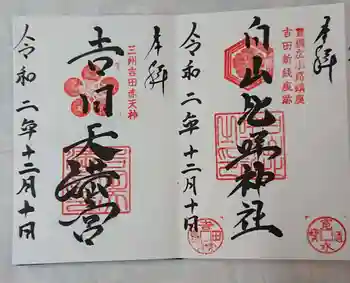 奉拝
豊橋左小路鎮座
吉田新銭座跡
白山比咩神社
令和二年十二月十日
奉拝
三州吉田赤天神
吉田天満宮
令和二年十二月十日